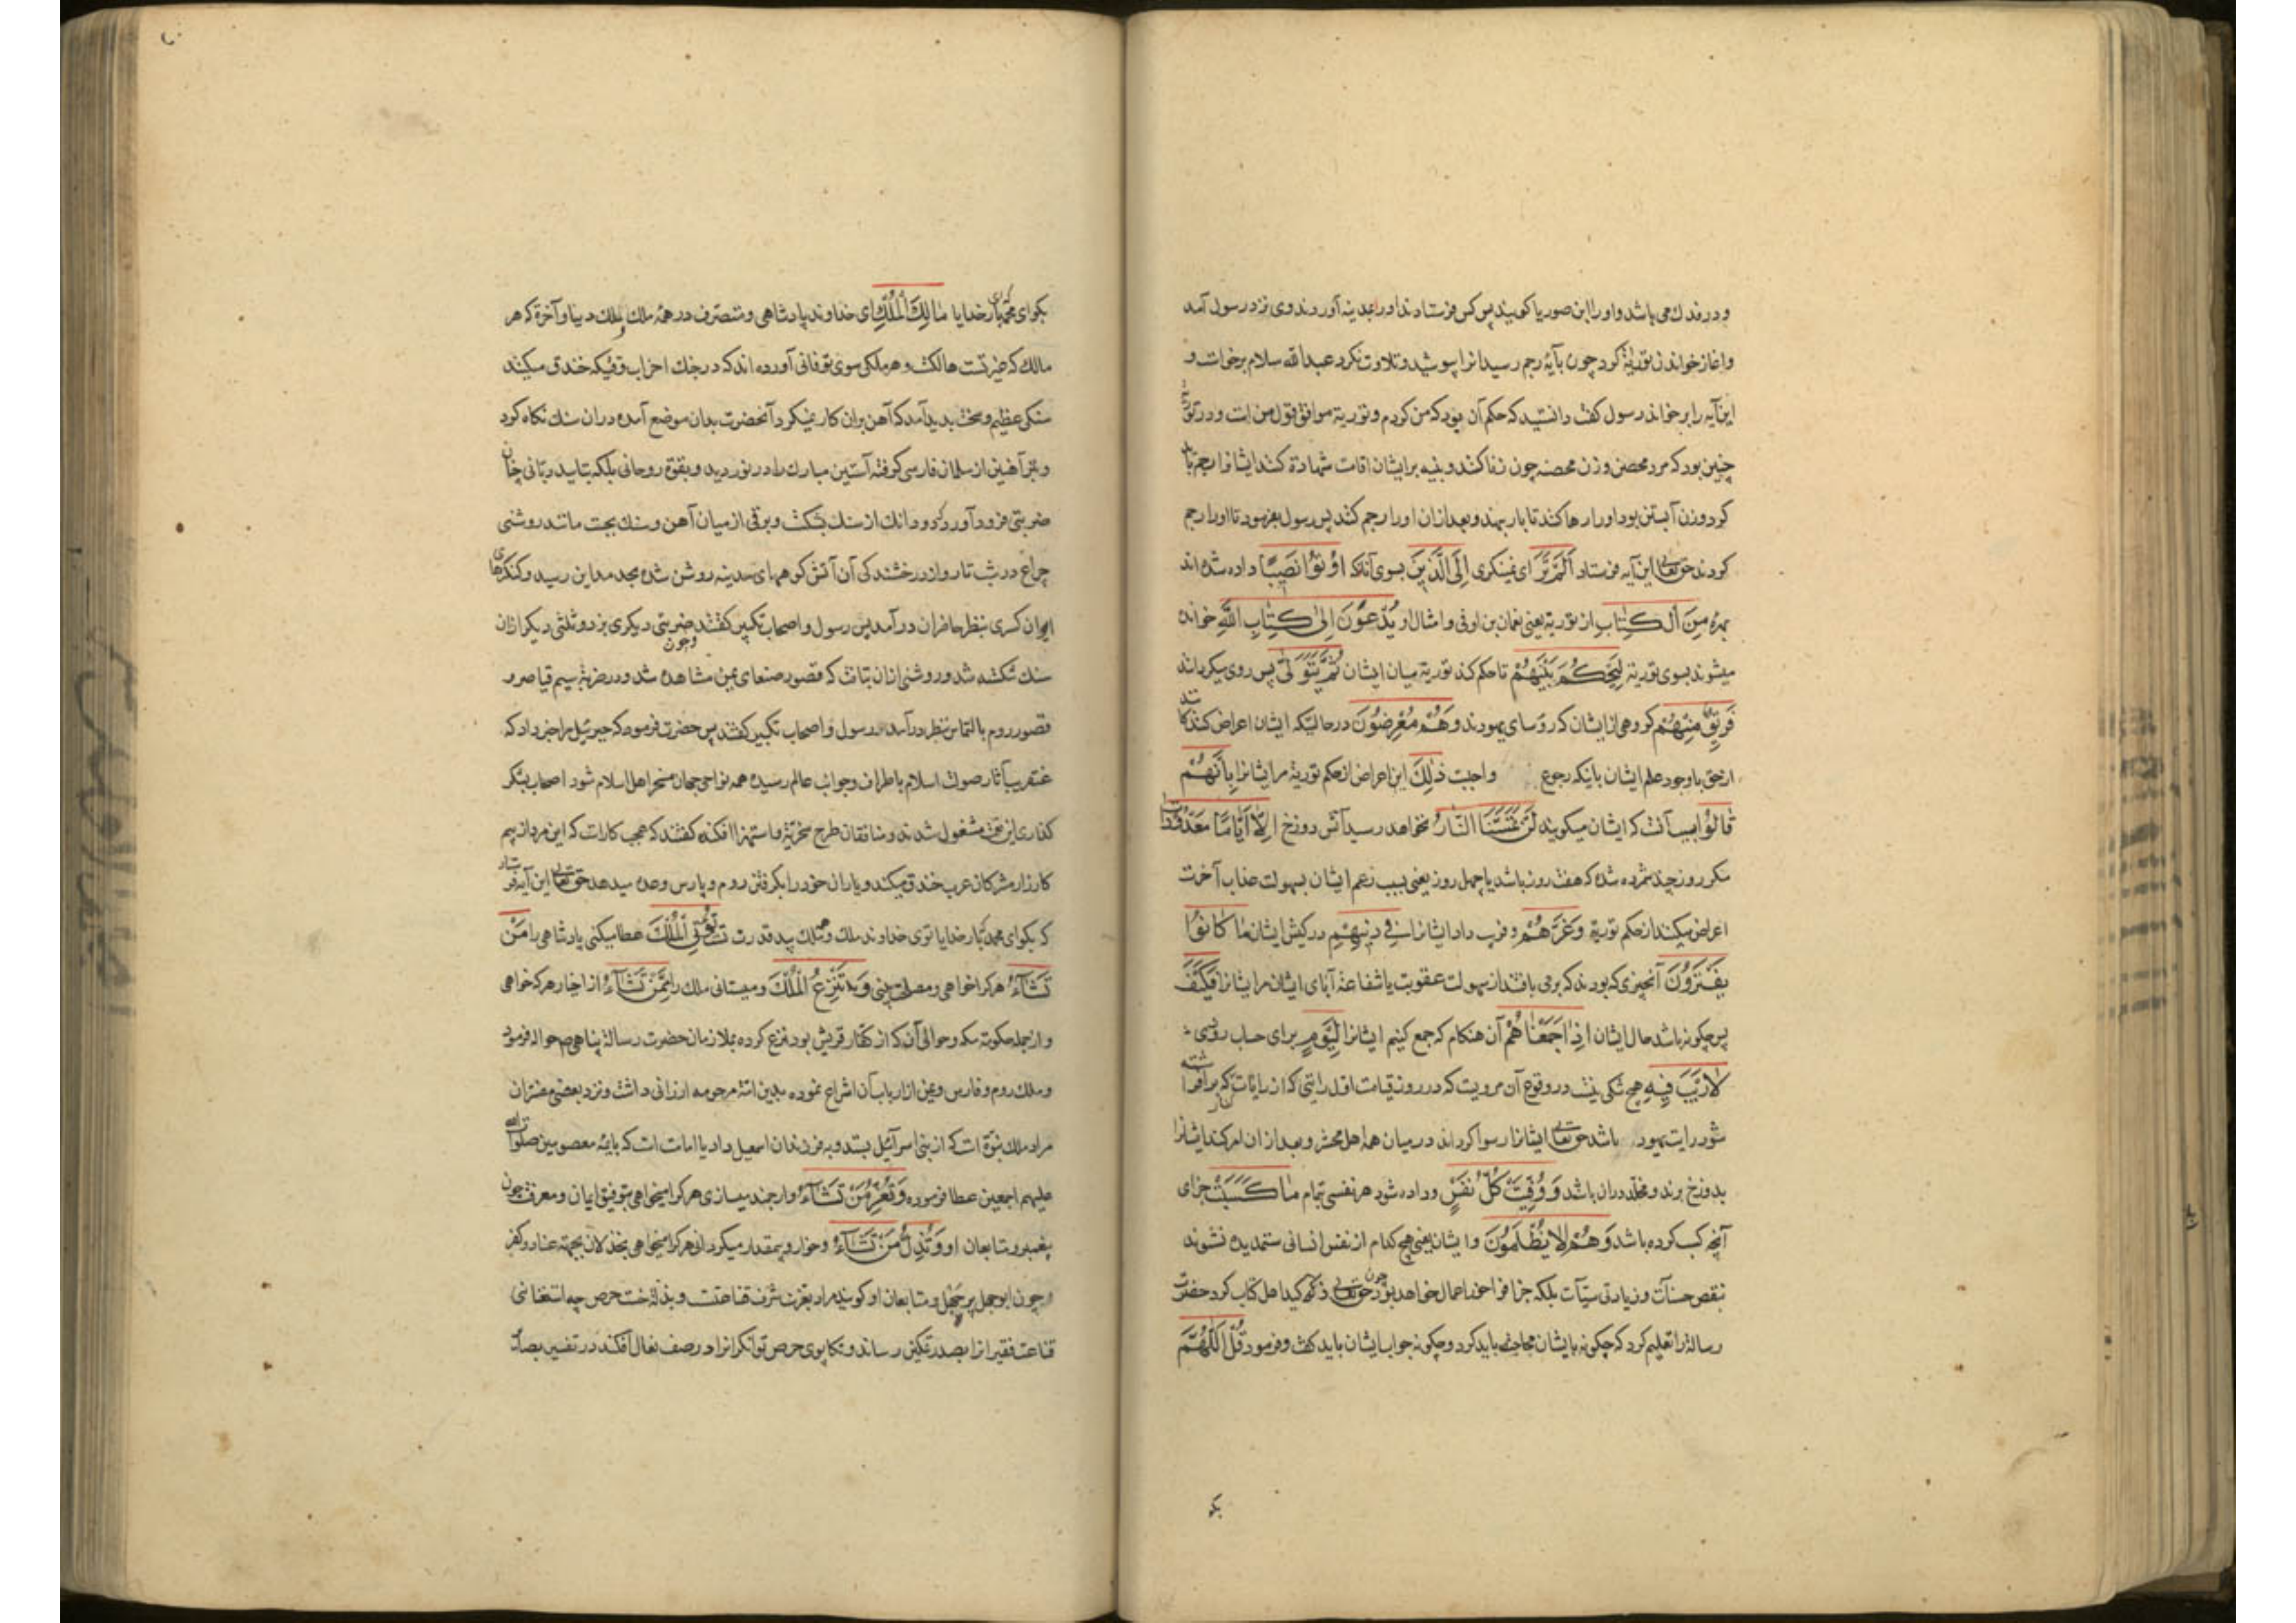 و در فدک می باشد و او را ابن صوریا کویند پس کس فرستادند او را بمدینه آوردند وی نزد رسول آمد
و اغاز خواندن توریة کرد چون بآیهٔ رجم رسید انرا پوشید و تلاوت نکرد عبدالله سلام برخواست و
این آیه را برخواند رسول کفت دانستید که حکم آن بود که من کردم و توریة موافق قول من است و در توریة
چنین بود که مرد محصن و زن محصنه چون زنا کنند و بینه بر ایشان اقامت شهادة کنند ایشانرا رجم باید
کرد و زن آبستن بود او را رها کنند تا بار بنهد و بعد از ان او را رجم کنند پس رسول بفرمود تا او را رجم
کردند حق تعالی این آیه فرستاد اَلَمْ تَرَ ای نمینکری اِلَی الَّذینَ بسوی آنانکه اُوتُوا نَصیبًا داده شده اند
بهرهٔ مِنَ الْکِتابِ از توریة یعنی نعمان بن اوفی و امثال او یُدْعَوْنَ اِلیٰ کِتابِ اللّٰهِ خوانده
میشوند بسوی توریة لِیَحْکُمَ بَیْنَهُمْ تا حکم کند توریة میان ایشان ثُمَّ یَتَوَلّیٰ پس روی میکردانند
فَریقٌ مِنْهُمْ کروهی از ایشان که رؤسای یهودند وَهُمْ مُعْرِضُونَ در حالتیکه ایشان اعراض کنندکانند
از حق با وجود علم ایشان بانیکه رجوع واجبست ذٰلِکَ این اعراض از حکم توریة مر ایشانرا بِاَنَّهُمْ
قالُوا بسبب آنست که ایشان میکویند لَنْ تَمَسَّنَا النّارُ نخواهد رسید آتش دوزخ اِلّا اَیّامًا مَعْدُوداتٍ
مکر روز چند شمرده شده که هفت روز باشد یا چهل روز یعنی بسبب زعم ایشان بسهولت عذاب آخرت
اعراض میکنند از حکم توریة وَغَرَّهُمْ و فریب داد ایشانرا فی دینِهِمْ در کیش ایشان ما کانُوا
یَفْتَرُونَ آنچیزی که بودند که بر می بافتند از سهولت عقوبت یا شفاعة آبای ایشان مر ایشانرا فَکَیْفَ
پس چکونه باشد حال ایشان اِذا جَمَعْناهُمْ آن هنکام که جمع کنیم ایشانرا لِیَوْمٍ برای حساب روزی که
لا رَیْبَ فیهِ هیچ شکی نیست در وقوع آن مرویست که در روز قیامت اول رایتی که از رایات کفار بر افراشته
شود رایت یهود باشد حق تعالی ایشانرا رسوا کرداند در میان همه اهل محشر و بعد از ان امر کند ایشانرا
بدوزخ برند و مخلد در ان باشد وَوُفِّیَتْ کُلُّ نَفْسٍ و داده شود هر نفسی تمام ما کَسَبَتْ جزای
آنچه کسب کرده باشد وَهُمْ لا یُظْلَمُونَ و ایشان یعنی هیچ کدام از نفس انسانی ستمدیده نشوند
بنقص حسنات و زیادتی سیّآت بلکه جزا فراخور اعمال خواهد بود چون حق تعالی ذکر کید اهل کتاب کرد حضرت
رسالة را تعلیم کرد که چکونه با ایشان محاجه باید کرد و چکونه جواب ایشان باید کفت و فرمود قُلِ اللّٰهُمَّ
بکو
بکو ای محمد بار خدایا مٰالِکَ الْمُلْکِ ای خداوند پادشاهی و متصرف در همهٔ ملک و ملک دنیا و آخرة که هر
مالک که غیر تست هالکست و هر ملکی سوی تو فانی آورده اند که در جنک احزاب وقتیکه خندق میکندند
سنکی عظیم و سخت پدید آمد که آهن بران کار نمیکرد آنحضرت بدان موضع آمده دران سنک نکاه کرد
و تبر آهنین از سلمان فارسی کرفته آستین مبارک را در نوردید و بقوة روحانی بلکه بتایید ربّانی چنان
ضربتی فرود آورد که دو دانک از سنک بشکست و برقی از میان آهن و سنک بجست مانند روشنی
چراغ در شب تار و از درخشندکی آن آتش کوههای مدینه روشن شده بحد مداین رسید و کنکرهای
ایوان کسری بنظر حاضران درآمد پس رسول و اصحاب تکبیر کفتند و چون ضربتی دیکری بزد و ثلثی دیکر ازان
سنک شکسته شد و روشنی ازان بتافت که قصور صنعای یمن مشاهده شد و در ضربهٔ سیم قیاصر و
قصور روم بالتمام بنظر درآمد رسول و اصحاب تکبیر کفتند پس حضرت فرمود که جبرئیل مرا خبر داد که
عنقریب آثار صولت اسلام باطراف و جوانب عالم رسیده همه نواحی جهان مسخر اهل اسلام شود اصحاب بشکر
کذاری این نعمت مشغول شدند و منافقان طرح سخریّة و استهزا افکنده کفتند که عجب کاراست که این مرد از بیم
کارزار مشرکان عرب خندق میکند و یاران خود را بکرفتن روم و پارس وعده میدهد حق تعالی این آیه فرستاد
که بکو ای محمد بار خدایا توی خداوند ملک و ملک بید قدرت تست تُؤْتِی الْمُلْکَ عطا میکنی پادشاهی را مَنْ
تَشاءُ هر کرا خواهی و مصلحت بینی وَتَنْزِعُ الْمُلْکَ و میستانی ملک را مِمَّنْ تَشاءُ از اخیار هر که خواهی
و از جمله حکومة مکه و حوالی آن که از کفار قریش بود نزع کرده بملازمان حضرت رسالة پناهی ص حواله فرمود
و ملک روم و فارس و یمن از ارباب آن انتزاع نموده بدین امّة مرحومه ارزانی داشت و نزد بعضی مفسران
مراد ملک نبوّة است که از بنی اسرائیل بستد و به فرزندان اسمعیل داد یا امامت است که بایمهٔ معصومین صلوات الله
علیهم اجمعین عطا فرموده وَتُعِزُّ مَنْ تَشاءُ و ارجمند میسازی هر کرا میخواهی بتوفیق ایمان و معرفت چون
پیغمبر و متابعان او وَتُذِلُّ مَنْ تَشاءُ و خوار و بیمقدار میکردانی هر کرا میخواهی بخذلان بجهته عناد و کفر
و چون ابوجهل پر جهل و متابعان او کویند مراد بعزت شرف قناعتست و بذلة خست حرص چه استغنای
قناعت فقیرانرا بصدر تمکین رساند و تکاپوی حرص توانکرانرا در صف نعال افکند در تفسیر بصائر